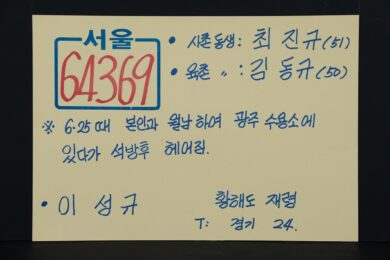 서울
64369
• 사촌동생: 최진규(51)
• 육촌 〃 : 김동규(50)
※ 6·25때 본인과 월남하여 광주 수용소에
있다가 석방후 헤어짐.
• 이성규
황해도 재령
T: 경기 24.